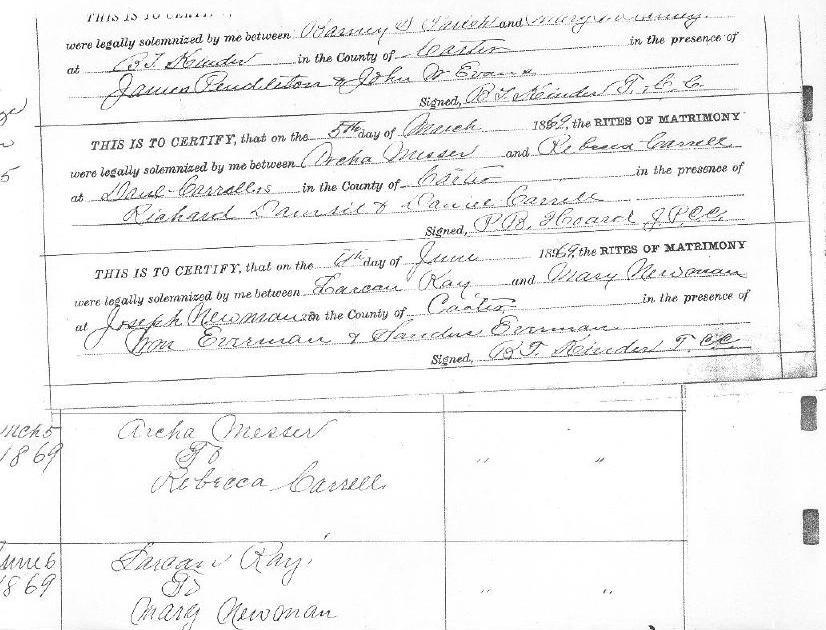 THIS IS TO CERTIFY
were legally solemnized by me between Barney and Mary
at B. F. Kinder in the County of Carter in the presence of
James Pendleton & John W Evans
Signed, B F Kinder T. C. C.
THIS IS TO CERTIFY, that on the 5th day of March 1869, the RITES OF MATRIMONY
were legally solemnized by me between Archa Messer and Rebecca Carrell
at Danl Carrolls in the County of Carter in the presence of
Richard & Daniel Carrell
Signed, P. B. Hoard J. P. C. C.
THIS IS TO CERTIFY, that on the 6th day of June 1869, the RITES OF MATRIMONY
were legally solemnized by me between Ray and Mary Newman
at Joseph Newmans in the County of Carter in the presence of
Wm Everman & Sanders Everman
Signed, B. F. Kinder T. C.C.
Mch 5
1869
Archa Messer
To
Rebecca Carrell
" "
June 6
1869
Ray
To
Mary Newman
" "